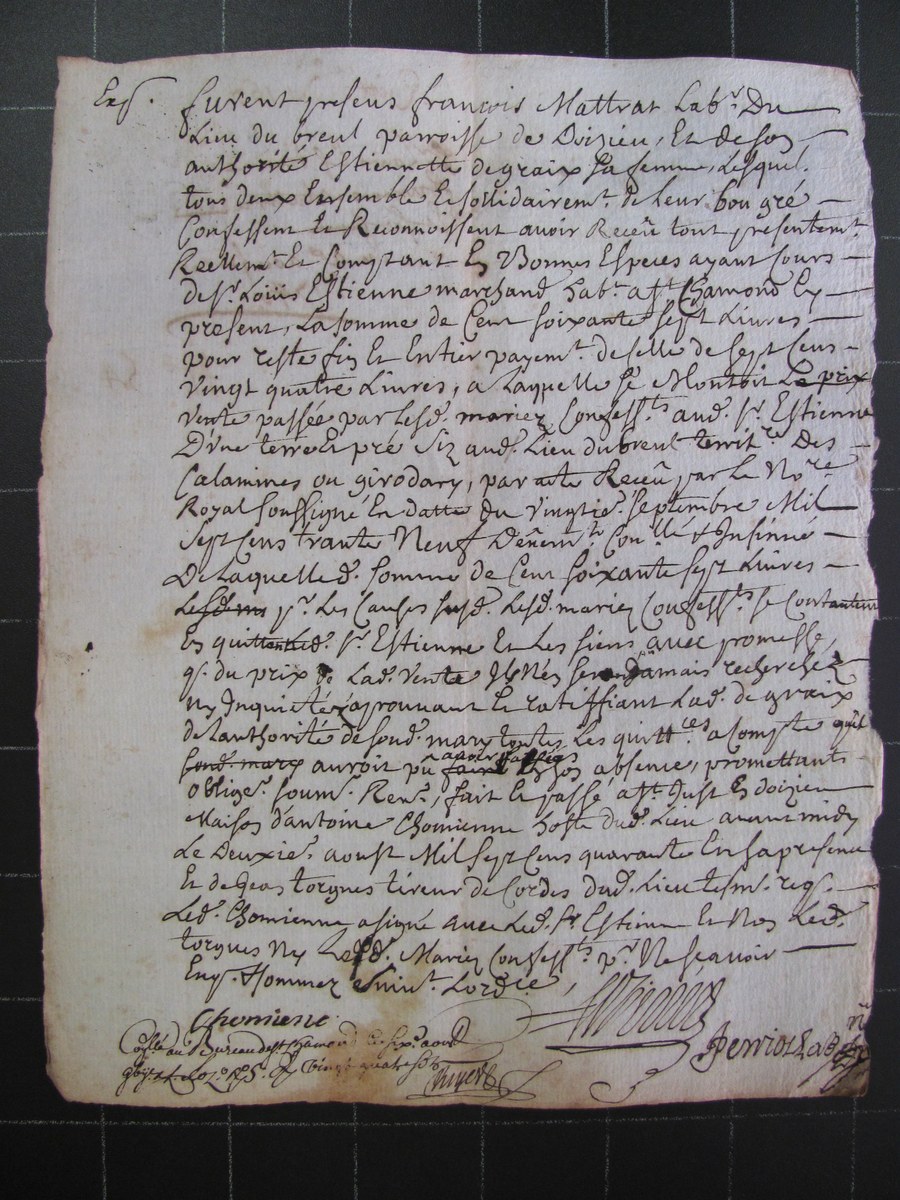 Exp. furent presens françois Mattrat Labr. Du
Lieu du breul parroisse de Doizieu, Et de son
authorité Estiennette degraix sa femme, Lesquel.
tous deux Ensemble Et sollidairemt. de Leur bon gré
Confessent Et Reconnoissent avoir Receu tout presentemt.
Reellemt. Et Comptant En Bonnes Especes ayant Cours
de Sr. Loüis Estienne marchand habt. a St. Chamond Ey
present, La somme de Cent soixante sept Livres
pour reste fin Et Entier payemt. de selle de sept Cens
Vingt quatre Livres, a Laquelle se Montoit Le prix
Vente passée par Lesd. mariez Confessts. aud. Sr. Estienne
D'une terre Et pré Siz aud. Lieu du breul territre. Des
Calamines ou girodary, par acte Receu par Le Nore.
Royal soussigné En datte du Vingtie. septembre Mil
Sept Cens trante Neuf Deuemt. Conllé & Insinué
De Laquelle d. somme de Cent soixante sept Livres
pr. Les Causes susd. Lesd. mariez Confessts. se Contantent
En quittent led. Sr. Estienne Et Les siens avec promesse,
q. du prix de Lad. Vente Il N'en sera Jamais recherchez
Ny Inquietéz aprouvant Et ratiffiant Lad. de graix
de Lauthorité de sond. mary toutes Les quittces. a Compte quil
auroit pû avoir passées En son absence, promettants
Obliget. soumt. Rent., fait Et passé a St. Just En doizieu
Maison d'antoine Chomienne hoste dud. Lieu avant midy
Le Deuxie. aoust Mil sept Cens quarante En sa presence
Et de Jean torgues tireur de Cordes dud. Lieu tesm. req.
Led. Chomienne a signé avec Led. Sr. Estienne Et Non Led.
torgues Ny Lesd. Mariez Confessts. pr. Ne scavoir
Enq. Et Sommez suivt. Lordce.,
Chomiene
Conllé au Bureau de St. Chamond Le six. aout
Vingt quatre sols